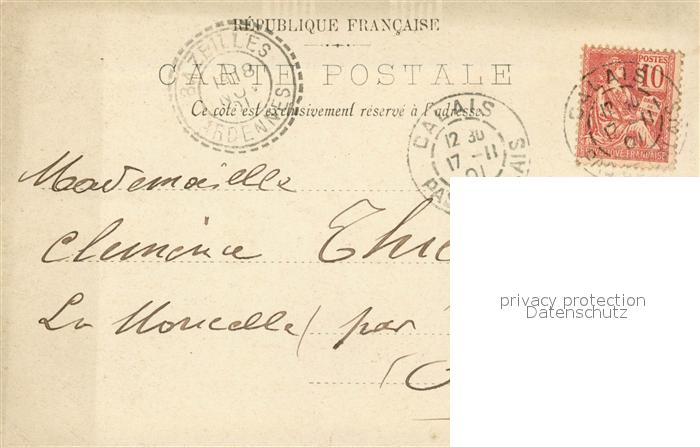 RÉPUBLIQUE FRANÇAISE
CARTE POSTALE
Ce côté est exclusivement réservé à l'adresse
BAZEILLES
18
NOV
01
ARDENNES
CALAIS
12 30
17 - 11
01
PAS
AIS
POSTES
10
CALAIS
RÉPUBLIQUE FRANÇAISE
Mademoiselle
Clémence
La Moncelle par
privacy protection
Datenschutz